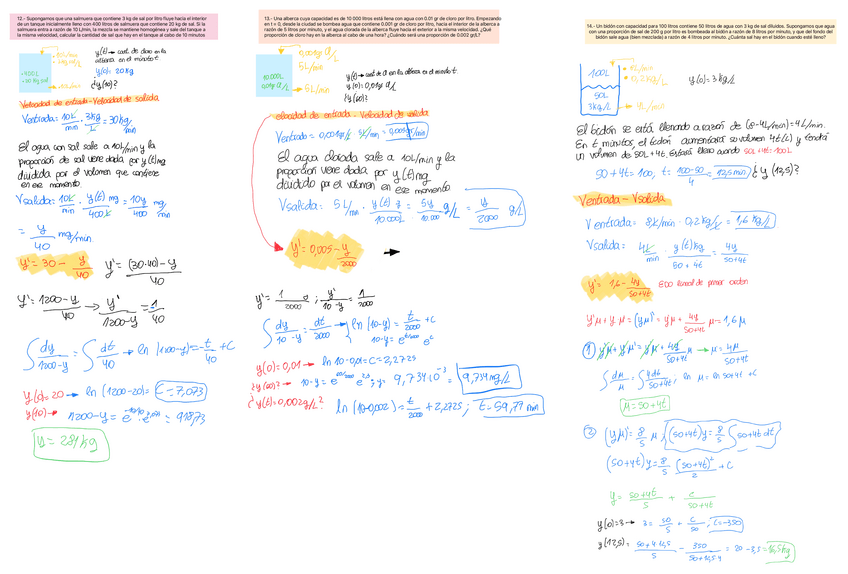 12.- Supongamos que una salmuera que contiene 3 kg de sal por litro fluye hacia el interior
de un tanque inicialmente lleno con 400 litros de salmuera que contiene 20 kg de sal. Si la
salmuera entra a razón de 10 L/min, la mezcla se mantiene homogénea y sale del tanque a
la misma velocidad, calcular la cantidad de sal que hay en el tanque al cabo de 10 minutos
y(t) → cant. de cloro en la
alberca en el minuto t
y(0) = 20kg
¿y(10)?
Velocidad de entrada - Velocidad de salida
Ventrada = 10L/min · 3kg/L = 30kg/min
El agua con sal sale a 10L/min y la
proporción de sal viene dada por y(t)mg
dividida por el volumen que contiene
en ese momento.
Vsalida = 10L/min · y(t) mg/400L = 10y/400 mg/min
= y/40 mg/min
y' = 30 - y/40
y' = (30·40)-y/40
y' = 1200-y/40 → y'/1200-y = 1/40
∫ dy/1200-y = ∫ dt/40 → ln(1200-y) = -t/40 + C
y(0)=20 → ln(1200-20) = C = 7,073
y(10) → 1200-y = e^-10/40 · e^7,073 = 918,73
y = 281kg
13.- Una alberca cuya capacidad es de 10 000 litros está llena con agua con 0.01 gr de cloro por litro. Empezando
en t = 0, desde la ciudad se bombea agua que contiene 0.001 gr de cloro por litro, hacia el interior de la alberca a
razón de 5 litros por minuto, y el agua clorada de la alberca fluye hacia el exterior a la misma velocidad. ¿Qué
proporción de cloro hay en la alberca al cabo de una hora? ¿Cuándo será una proporción de 0.002 gr/L?
10.000L
5L/min
5L/min
y(t) → cant de cl en la alberca en el minuto t
y(0) = 0,01g/L
¿y(60)?
elocidad de entrada - Velocidad de salida
Ventrada = 0,001g/L · 5L/min = 0,005gr/min
El agua clorada sale a 10L/min y la
proporción viene dada por y(t)mg
dividido por el volumen en ese momento
Vsalida = 5L/min · y(t) g/10.000L = 5y/10.000 g/L = y/2000 g/L
y' = 0,005 - y/2000
∫ dy/10-y = dt/2000 → ln(10-y) = t/2000 + C
y(0) = 0,01 → ln 10-0,01 = C = 2,2725
¿y(t) = 0,002g/L? ln(10-0,002) = t/2000 + 2,2725; t = 59,77 min
14.- Un bidón con capacidad para 100 litros contiene 50 litros de agua con 3 kg de sal diluidos. Supongamos que agua
con una proporción de sal de 200 gr por litro es bombeada al bidón a razón de 8 litros por minuto, y que del fondo del
bidón sale agua (bien mezclada) a razón de 4 litros por minuto. ¿Cuánta sal hay en el bidón cuando esté lleno?
100L
50L
3kg/L
8L/min
0,2kg/L
4L/min
y(0) = 3kg/L
El bidón se está llenando a razón de (8-4L/min) = 4L/min.
En t minutos, el bidón aumentará su volumen 4t(L) y tendrá
un volumen de 50L + 4t. Estará lleno cuando 50L + 4t = 100L
50 + 4t = 100, t = 100-50/4 = 12,5 min ¿y(12,5)?
Ventrada - Vsalida
Ventrada = 8L/min · 0,2kg/L = 1,6 kg/L
Vsalida = 4L/min · y(t)kg/50+4t = 4y/50+4t
y' = 1,6 - 4y/50+4t EDO lineal de primer orden
y'μ + y·μ' = (yμ)' = y'μ + 4y/50+4t μ = 1,6μ
① y'μ + yμ' = y'μ + 4y/50+4t μ → μ' = 4μ/50+4t
∫ dμ/μ = ∫ 4dt/50+4t; ln μ = ln 50+4t + C
μ = 50+4t
② (yμ)' = 8/5 μ; (50+4t)y = 8/5 ∫ 50+4t dt
(50+4t)y = 8/5 (50+4t)²/2 + C
y = 50+4t/5 + c/50+4t
y(0)=3 → 3 = 50/5 + C/50; C = -350
y(12,5) = 50+4·12,5/5 - 350/50+12,5·4 = 20 - 3,5 = 16,5kg